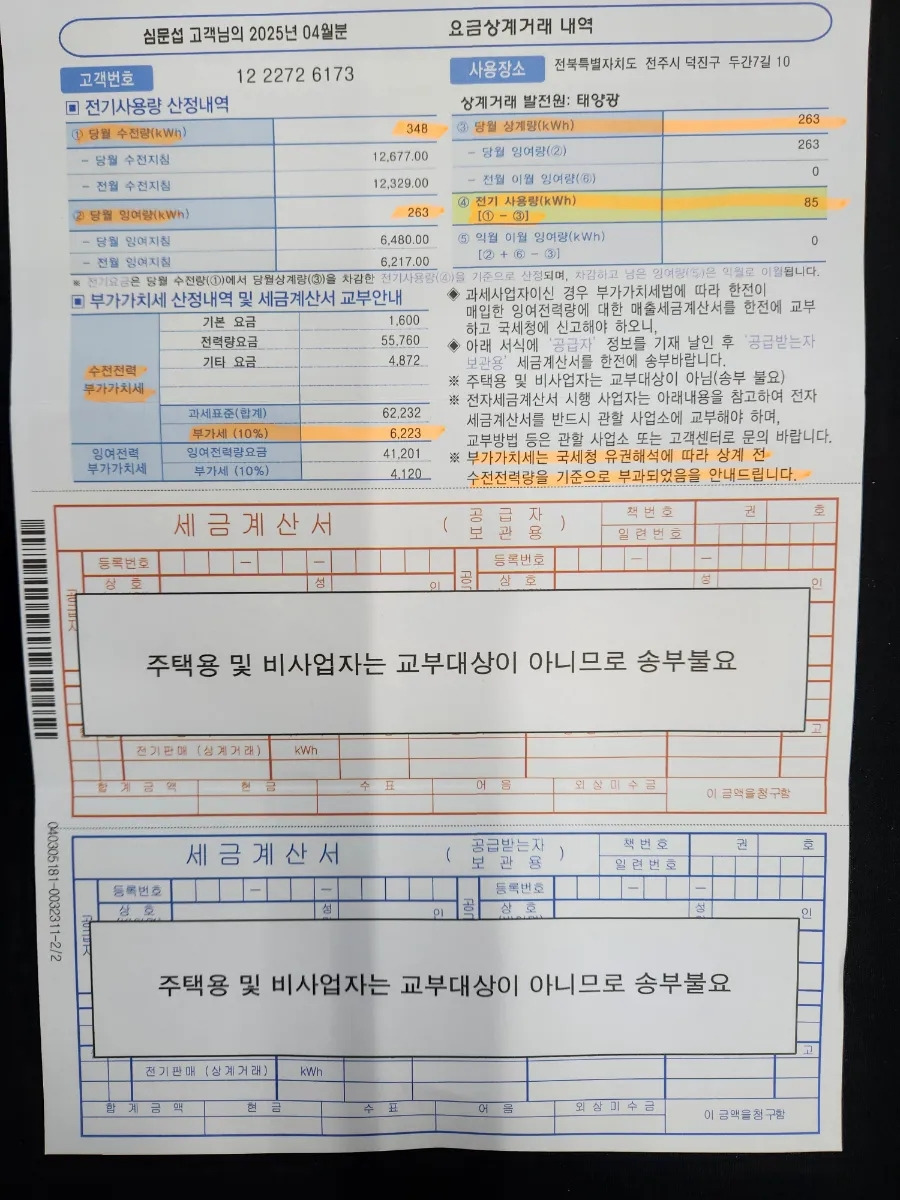 심문섭 고객님의 2025년 04월분 요금상계거래 내역
고객번호 12 2272 6173
사용장소 전북특별자치도 전주시 덕진구 두간7길 10
▣ 전기사용량 산정내역
① 당월 수전량(kWh) 348
- 당월 수전지침 12,677.00
- 전월 수전지침 12,329.00
② 당월 잉여량(kWh) 263
- 당월 잉여지침 6,480.00
- 전월 잉여지침 6,217.00
상계거래 발전원: 태양광
③ 당월 상계량(kWh) 263
- 당월 잉여량(②) 263
- 전월 이월 잉여량(⑥) 0
④ 전기 사용량(kWh) 85
[① - ③]
⑤ 익월 이월 잉여량(kWh) 0
[② + ⑥ - ③]
※ 전기요금은 당월 수전량(①)에서 당월상계량(③)을 차감한 전기사용량(④)을 기준으로 산정되며, 차감하고 남은 잉여량(⑤)은 익월로 이월됩니다.
▣ 부가가치세 산정내역 및 세금계산서 교부안내
수전전력
부가가치세
기본 요금 1,600
전력량요금 55,760
기타 요금 4,872
과세표준(합계) 62,232
부가세 (10%) 6,223
잉여전력
부가가치세
잉여전력량요금 41,201
부가세 (10%) 4,120
◈ 과세사업자이신 경우 부가가치세법에 따라 한전이
매입한 잉여전력량에 대한 매출세금계산서를 한전에 교부
하고 국세청에 신고해야 하오니,
◈ 아래 서식에 '공급자' 정보를 기재 날인 후 '공급받는자
보관용' 세금계산서를 한전에 송부바랍니다.
※ 주택용 및 비사업자는 교부대상이 아님(송부 불요)
※ 전자세금계산서 시행 사업자는 아래내용을 참고하여 전자
세금계산서를 반드시 관할 사업소에 교부해야 하며,
교부방법 등은 관할 사업소 또는 고객센터로 문의 바랍니다.
※ 부가가치세는 국세청 유권해석에 따라 상계 전
수전전력량을 기준으로 부과되었음을 안내드립니다.
세금계산서 (공급자 보관용) 책번호 권 호
일련번호
등록번호 - - 등록번호 - -
상호 성 인 상호 성 인
주택용 및 비사업자는 교부대상이 아니므로 송부불요
고
전기판매 (상계거래) kWh
합계금액 현금 수표 어음 외상미수금 이 금액을청구함
세금계산서 (공급받는자 보관용) 책번호 권 호
일련번호
등록번호 - - 등록번호 - -
상호 성 인 상호 성 인
주택용 및 비사업자는 교부대상이 아니므로 송부불요
고
전기판매 (상계거래) kWh
합계금액 현금 수표 어음 외상미수금 이 금액을청구함
040305181-0032311-2/2